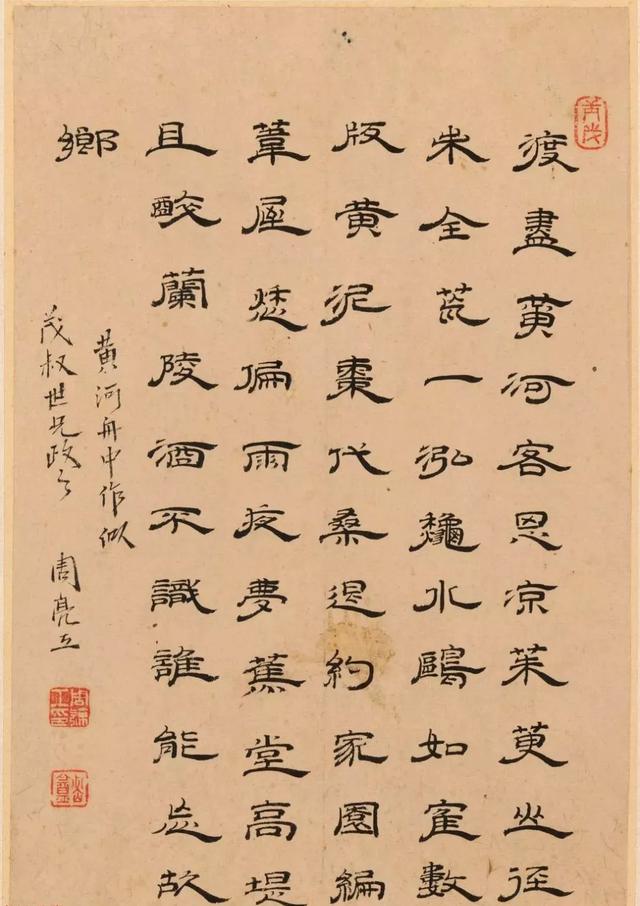 渡盡黄河客思凉茱萸山徑
未全荒一泓龝水鷗如隺數
版黄泥棗代桑退約家園編
葦屋愁偏雨夜夢蕉堂高堤
且醉蘭陵酒不識誰能忘故
鄉
黄河舟中作似
茂叔世兄政之 周亮工